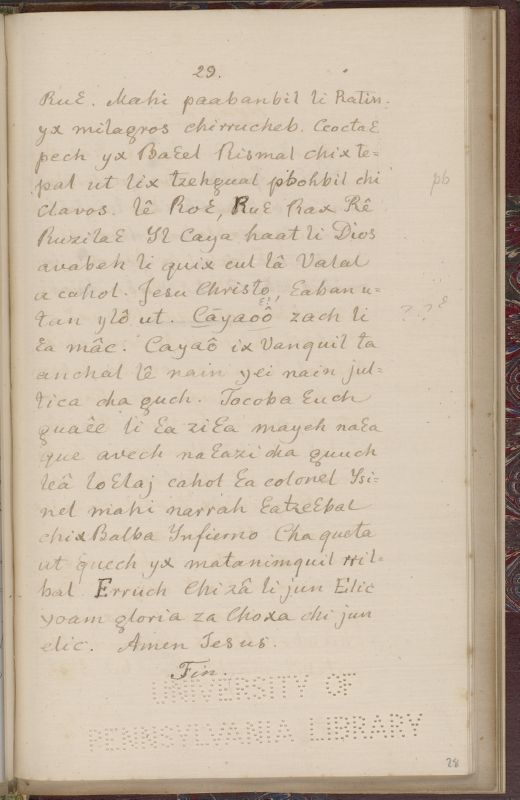 29.
Ruℇ. Mahi paabanbil li Ratin.
yx milagros chirrucheb. Ceoctaℇ
pech yx Baℇel Rismal chix te=
pal ut lix tzehgual pbohbil chi
pb
Clavos. lê Roℇ, Ruℇ Rax Rê
Ruzilaℇ Yl Caya haat li Dios
avabeh li quix cul lâ Valal
a cahol. Jesu Christo, ℇaban u=
ℇ?!
tan ylô ut. Cāyaoô zach li
? ? ℇ
ℇa mâc. Cayaô ix Vanquil ta
anchal lê nain yei nain jul=
tica cha guch. Tocoba ℇuch
guaêe li ℇa ziℇa mayeh naℇa
que avech naℇazi cha guuch
leâ loℇlaj cahol ℇa colonel Ysi=
nel mahi narrah ℇatzeℇbal
chix Balba Ynfierno Cha queta
ut quech yx matanimquil rril=
bal. Erruch Chi zâ li jun ℇilic
yoam gloria za Choxa chi jun
elic. Amen Jesus.
Fin.
UNIVERSITY OF
PENNSYLVANIA LIBRARY
28